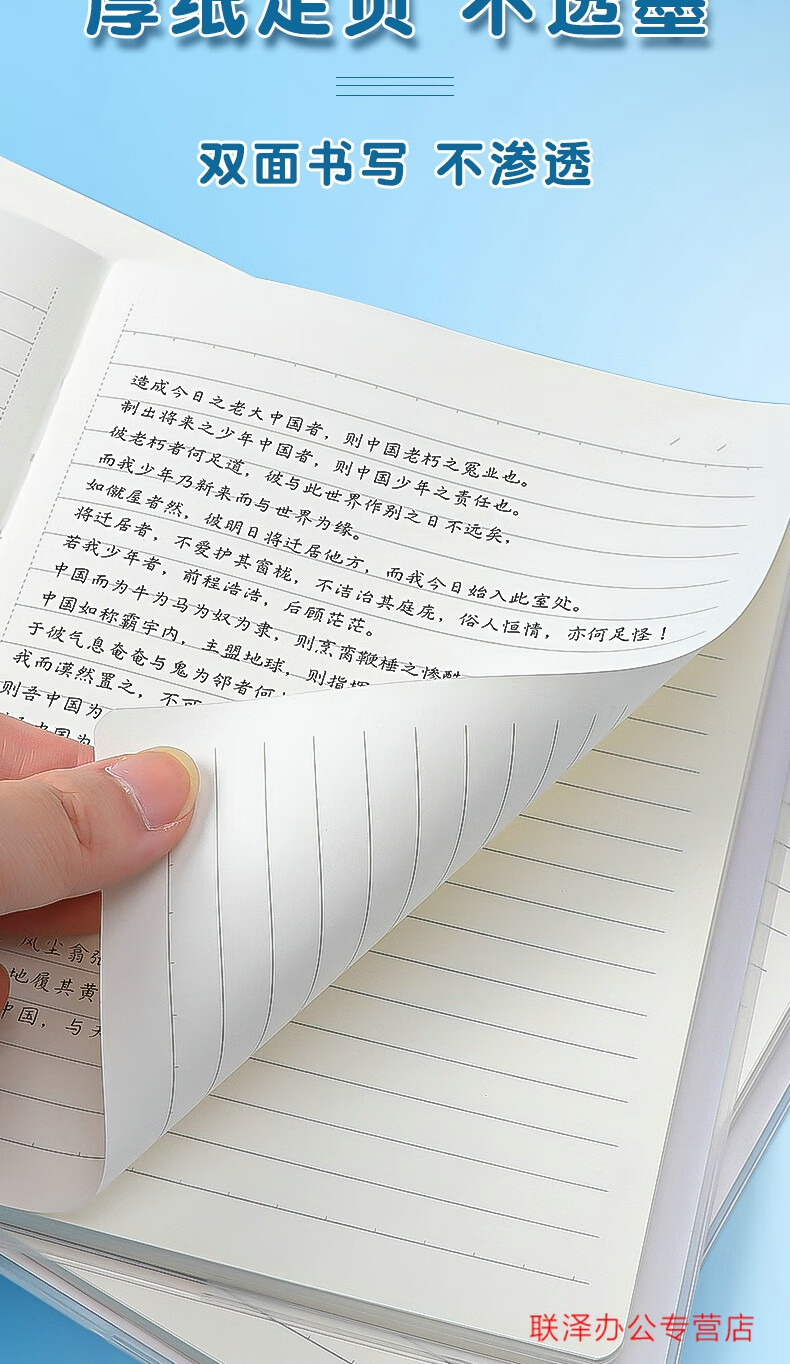 厚纸足页 不透墨
双面书写 不渗透
造成今日之老大中国者，则中国老朽之冤业也。
制出将来之少年中国者，则中国少年之责任也。
彼老朽者何足道，彼与此世界作别之日不远矣，
而我少年乃新来而与世界为缘。
如僦屋者然，彼明日将迁居他方，而我今日始入此室处。
将迁居者，不爱护其窗栊，不洁治其庭庑，俗人恒情，亦何足怪！
若我少年者，前程浩浩，后顾茫茫。
中国而为牛为马为奴为隶，则烹脔鞭棰之惨酷
中国如称霸宇内，主盟地球，则指挥
于彼气息奄奄与鬼为邻者何
我而漠然置之，不可
则吾中国为
中国为
风尘翕张
地履其黄
中国，与天
联泽办公专营店